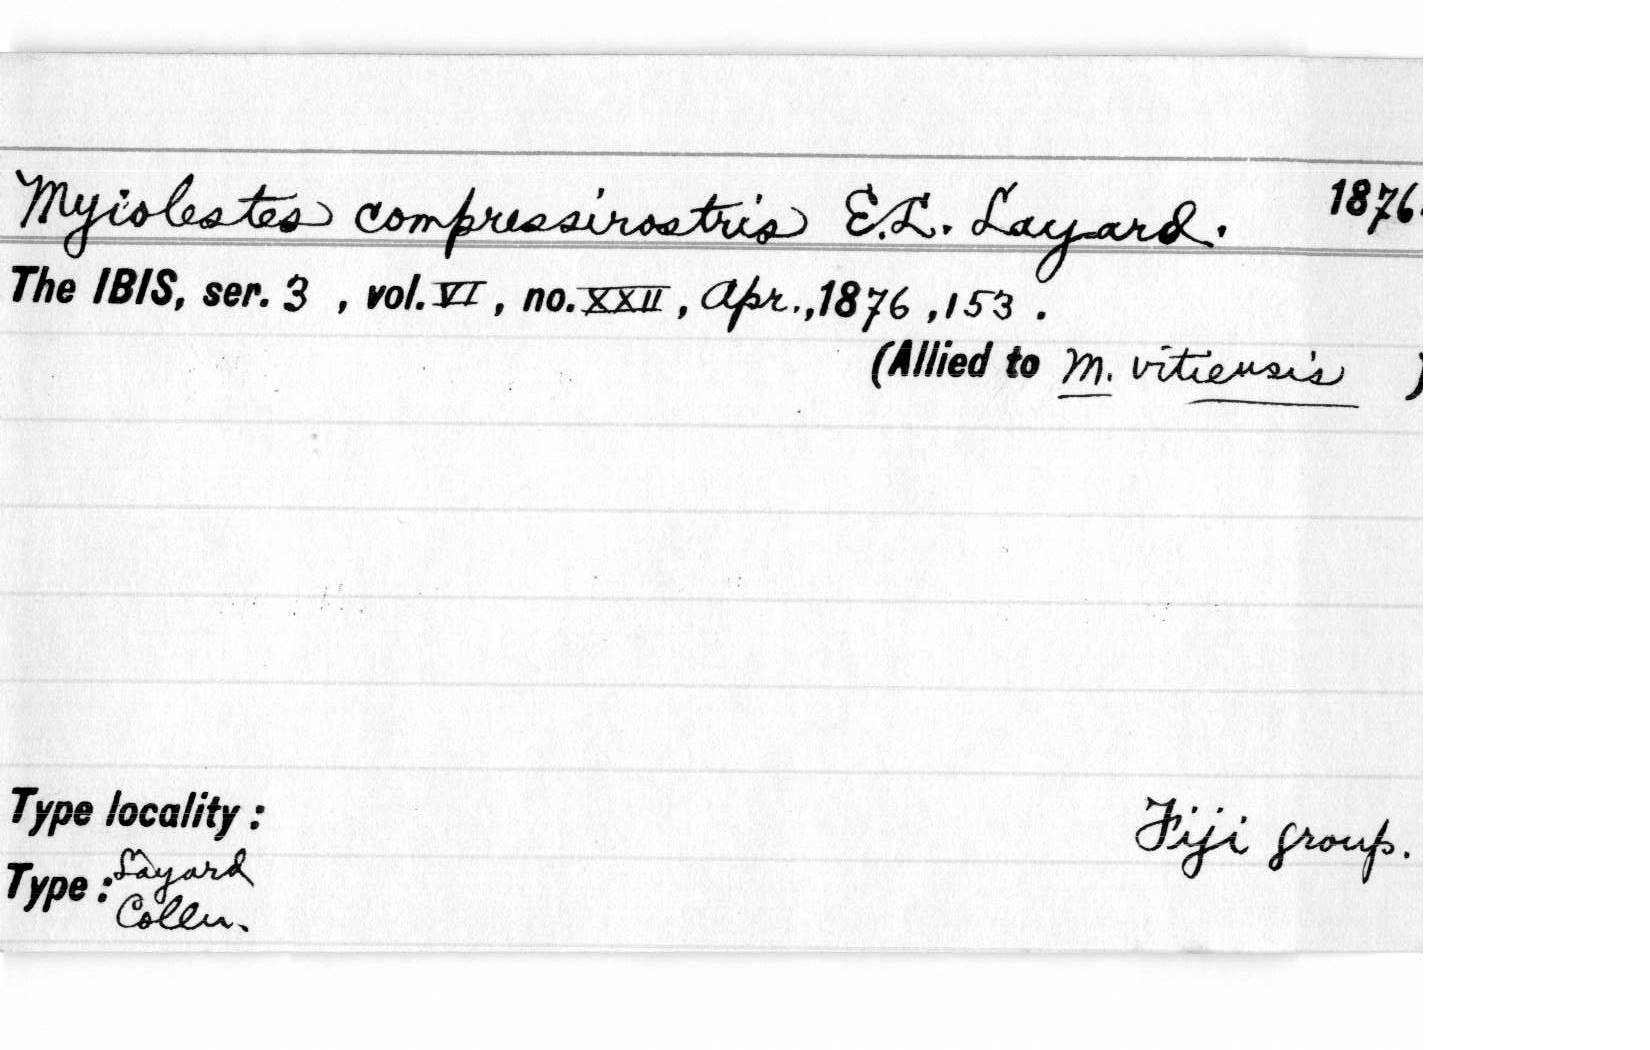 Myiolestes compressirostris E.L. Layard. 1876.
The IBIS, ser. 3 , vol. VI , no. XXII , Apr., 1876 , 153 .
(Allied to M. vitiensis )
Type locality : Fiji group.
Type : Layard
Colln.